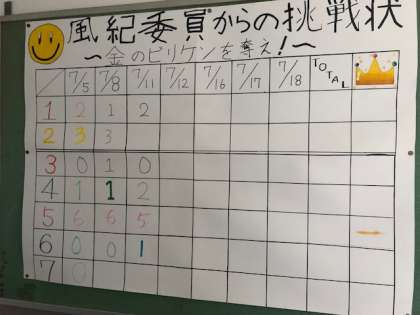 風紀委員からの挑戦状
〜金のビリケンを奪え！〜
7/5 7/8 7/11 7/12 7/16 7/17 7/18 TOTAL
1 2 1 2
2 3 3
3 0 1 0
4 1 1 2
5 6 6 5
6 0 0 1
7 0